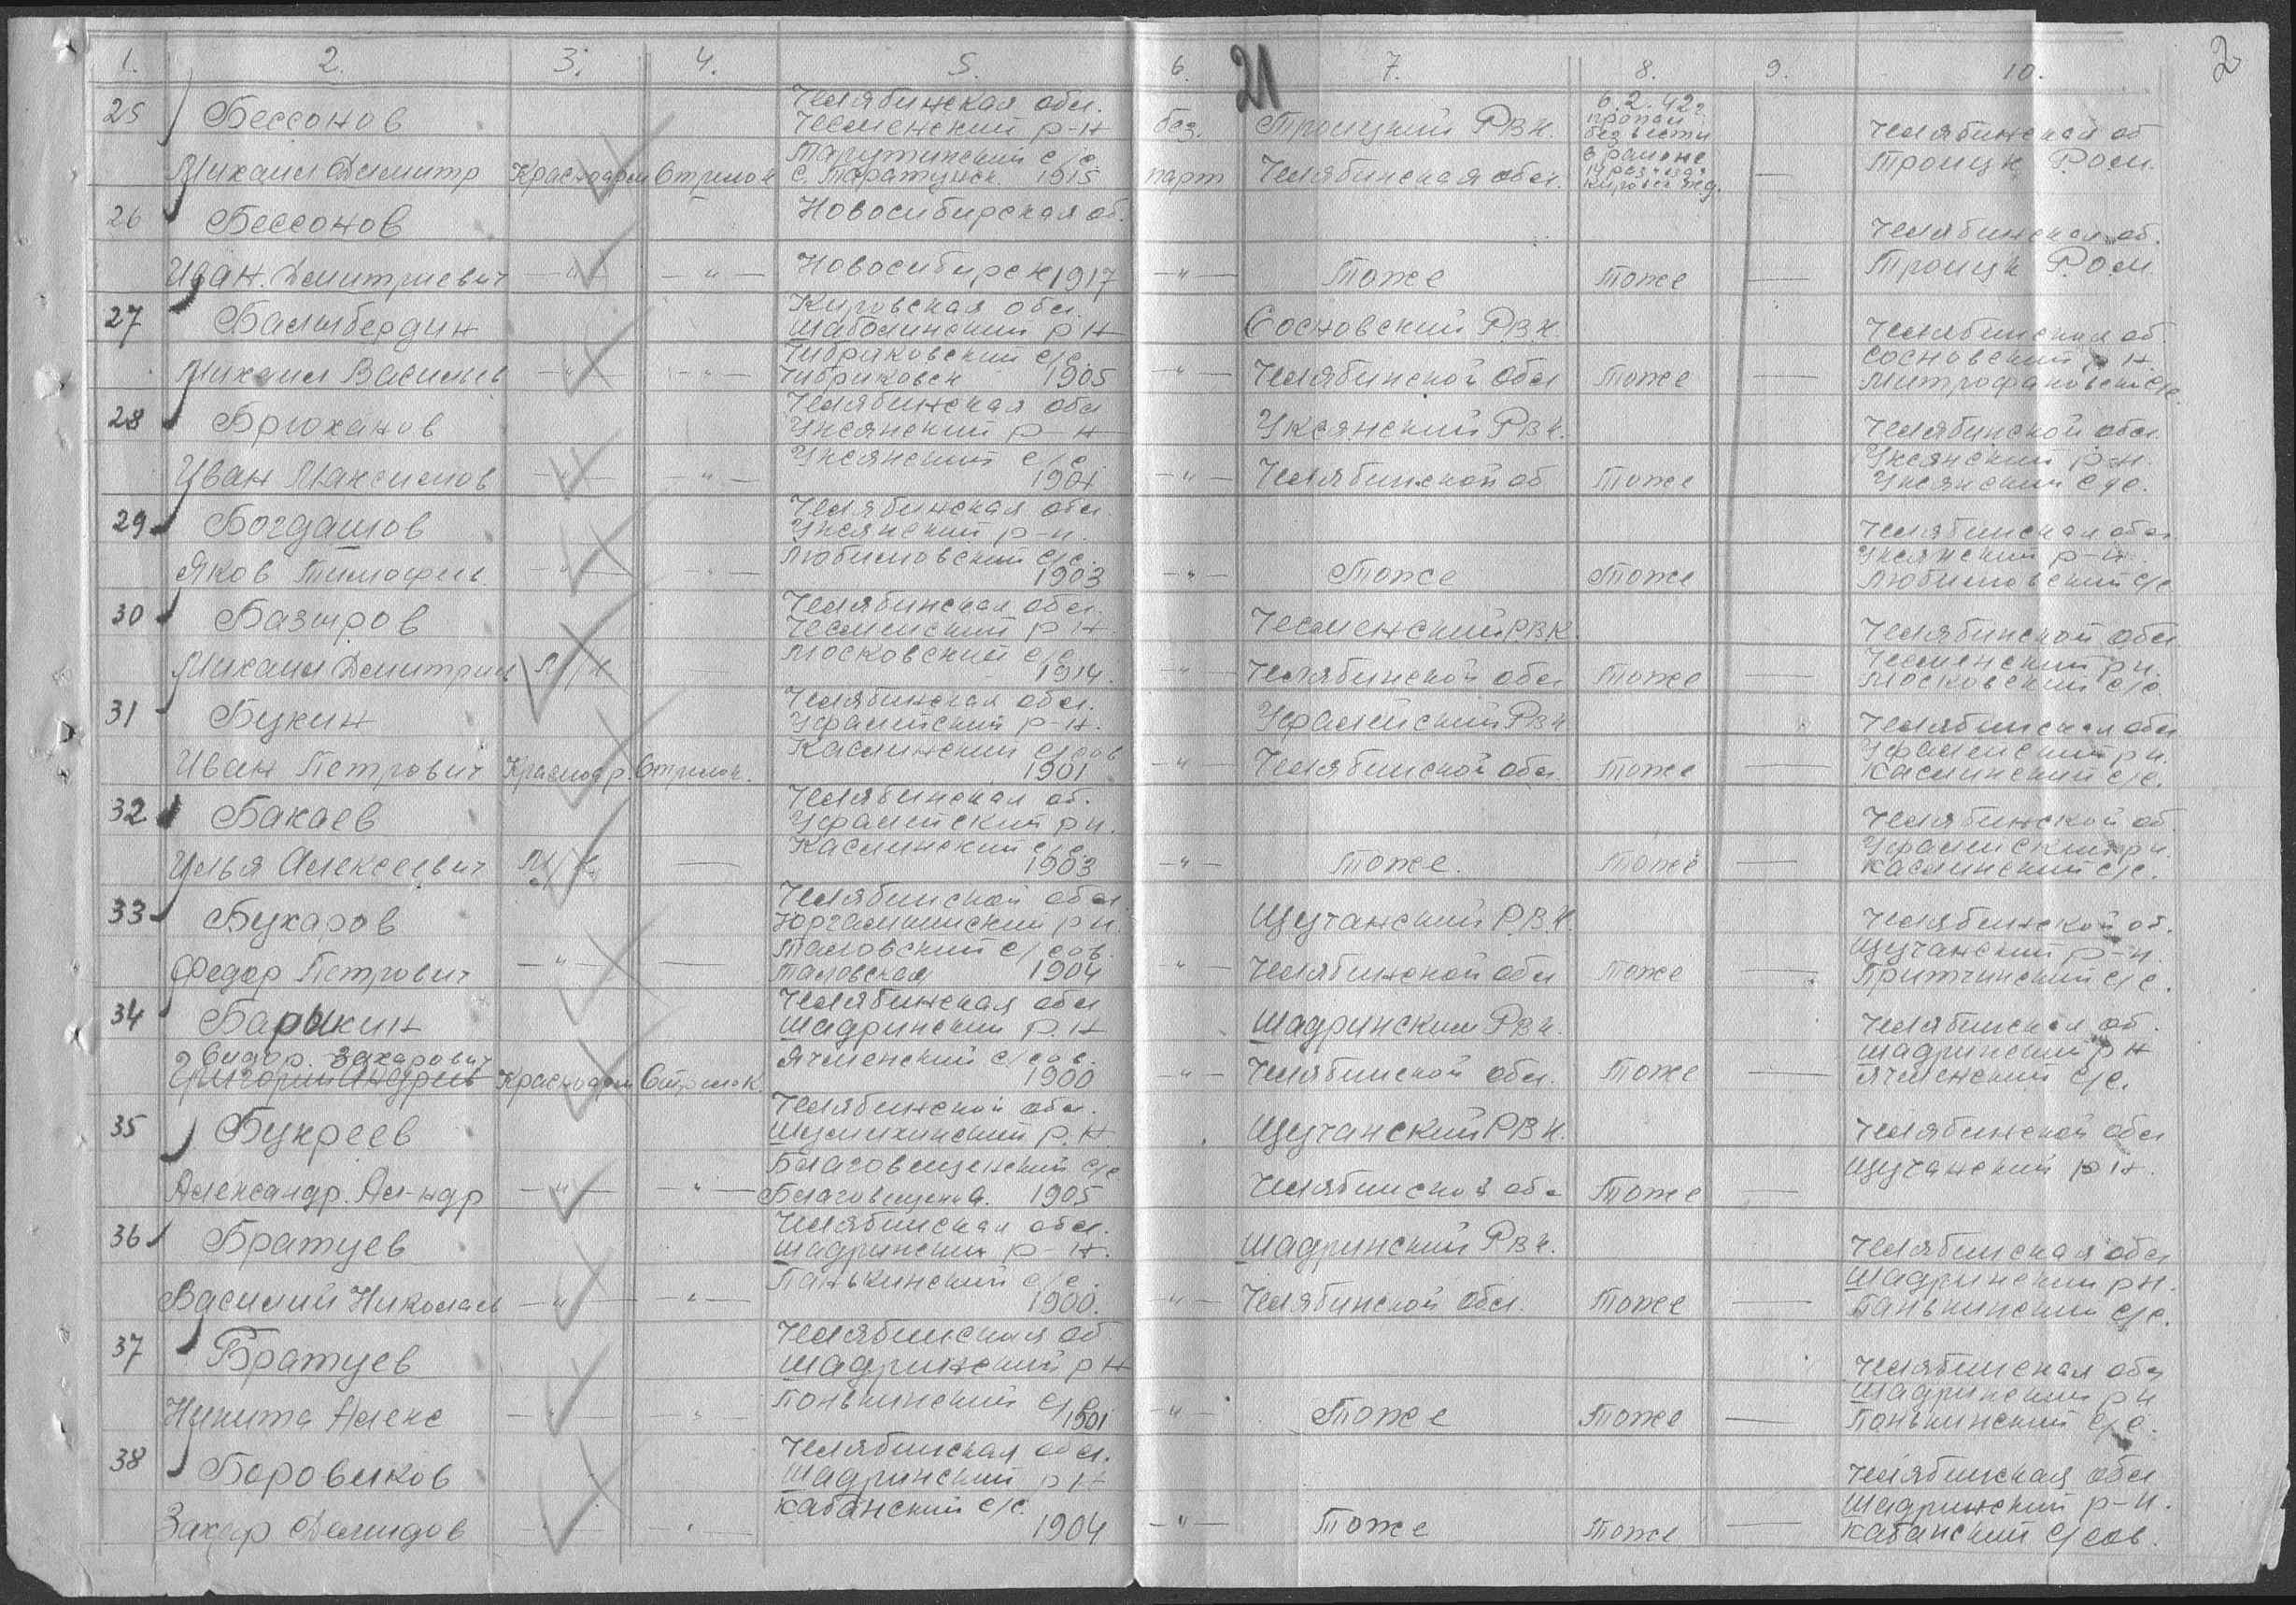 21
2
1. 2. 3. 4. 5. 6. 7. 8. 9. 10.
25 Бессонов
Михаил Демитр Красноарм Стрелок
Челябинская обл.
Чесменский р-н
Тарутинский с/с
1915
без.
парт
Троицкий РВК.
Челябинская обл.
6.2.42г
пропал
без вести
в районе
Челябинская об
Троицк Р.О.М.
26 Бессонов
Иван. Дмитриевич —"— —"—
Новосибирская об.
Новосибирск 1917
—"— Тоже Тоже —
Челябинская об.
Троицк Р.О.М
27
Михаил Васильев —"— —"—
Кировская обл.
Шабалинский р-н
1905
—"—
Сосновский РВК.
Челябинской Обл Тоже —
Челябинская об
Сосновский р-н.
Митрофановский с/с
28 Брюханов
Иван Максимов —"— —"—
Челябинская обл
Уксянский р-н
Уксянский с/с
1901
—"—
Уксянский РВК.
Челябинской об Тоже
Челябинской обл.
Уксянский р-н.
Уксянский с/с.
29 Богдашов
Яков Тимофеев —"— —"—
Челябинская обл.
Уксянский р-н.
Любимовский с/с.
1903
—"— Тоже Тоже
Челябинская обл
Уксянский р-н.
Любимовский с/с
30 Базыров
Михаил Дмитриев М/К —
Челябинская обл.
Чесменский р-н
Московский с/с
1914.
—"—
Чесменский Р.В.К.
Челябинской обл Тоже —
Челябинской обл
Чесменский рн.
Московский с/с
31 Букин
Иван Петрович Красноар. Стрелок.
Челябинская обл.
Уфалейский р-н.
Каслинский с/сов
1901
—"—
Уфалейский РВК
Челябинской обл. Тоже —
Челябинская обл
Уфалейский рн.
Каслинский с/с.
32 Бакаев
Илья Алексеевич М/К —
Челябинская об.
Уфалейский рн.
Каслинский с/с
1903
—"— Тоже. Тоже —
Челябинской об
Уфалейский рн.
Каслинский с/с.
33 Бухаров
Федор Петрович —"— —
Челябинской обл
Юргамышский рн.
Таловский с/сов.
Таловская 1904
—"—
Щучанский Р.В.К.
Челябинской обл Тоже —
Челябинской об.
Щучанский р-н.
с/с.
34 Барыкин
Сидор. Захарович
Григорий Андреев Красноарм Стрелок
Челябинская обл
Шадринский р.н
Ячменский с/сов.
1900
—"—
Шадринский РВК.
Челябинской обл. Тоже —
Челябинская об.
Шадринский рн
Ячменский с/с.
35 Букреев
Александр. Ал-ндр —"— —"—
Челябинской обл.
Шумихинский р.н.
Благовещенский с/с
1905
Щучанский РВК.
Челябинской обл Тоже —
Челябинской обл
Щучанский рн.
36 Братцев
Василий Николаев —"— —"—
Челябинская обл.
Шадринский р-н.
Панькинский с/с.
1900.
—"—
Шадринский РВК.
Челябинской обл. Тоже —
Челябинская обл
Шадринский рн.
Панькинский с/с.
37 Братцев
Никита Алекс —"— —"—
Челябинская об
Шадринский рн
Понькинский с/с
1901
—"— Тоже Тоже —
Челябинская обл
Шадринский рн
Понькинский с/с.
38 Боровиков
Захар Демидов —"— —"—
Челябинская обл.
Шадринский рн
Кабанский с/с.
1904
—"— Тоже Тоже —
Челябинская обл
Шадринский р-н.
Кабанский с/сов.